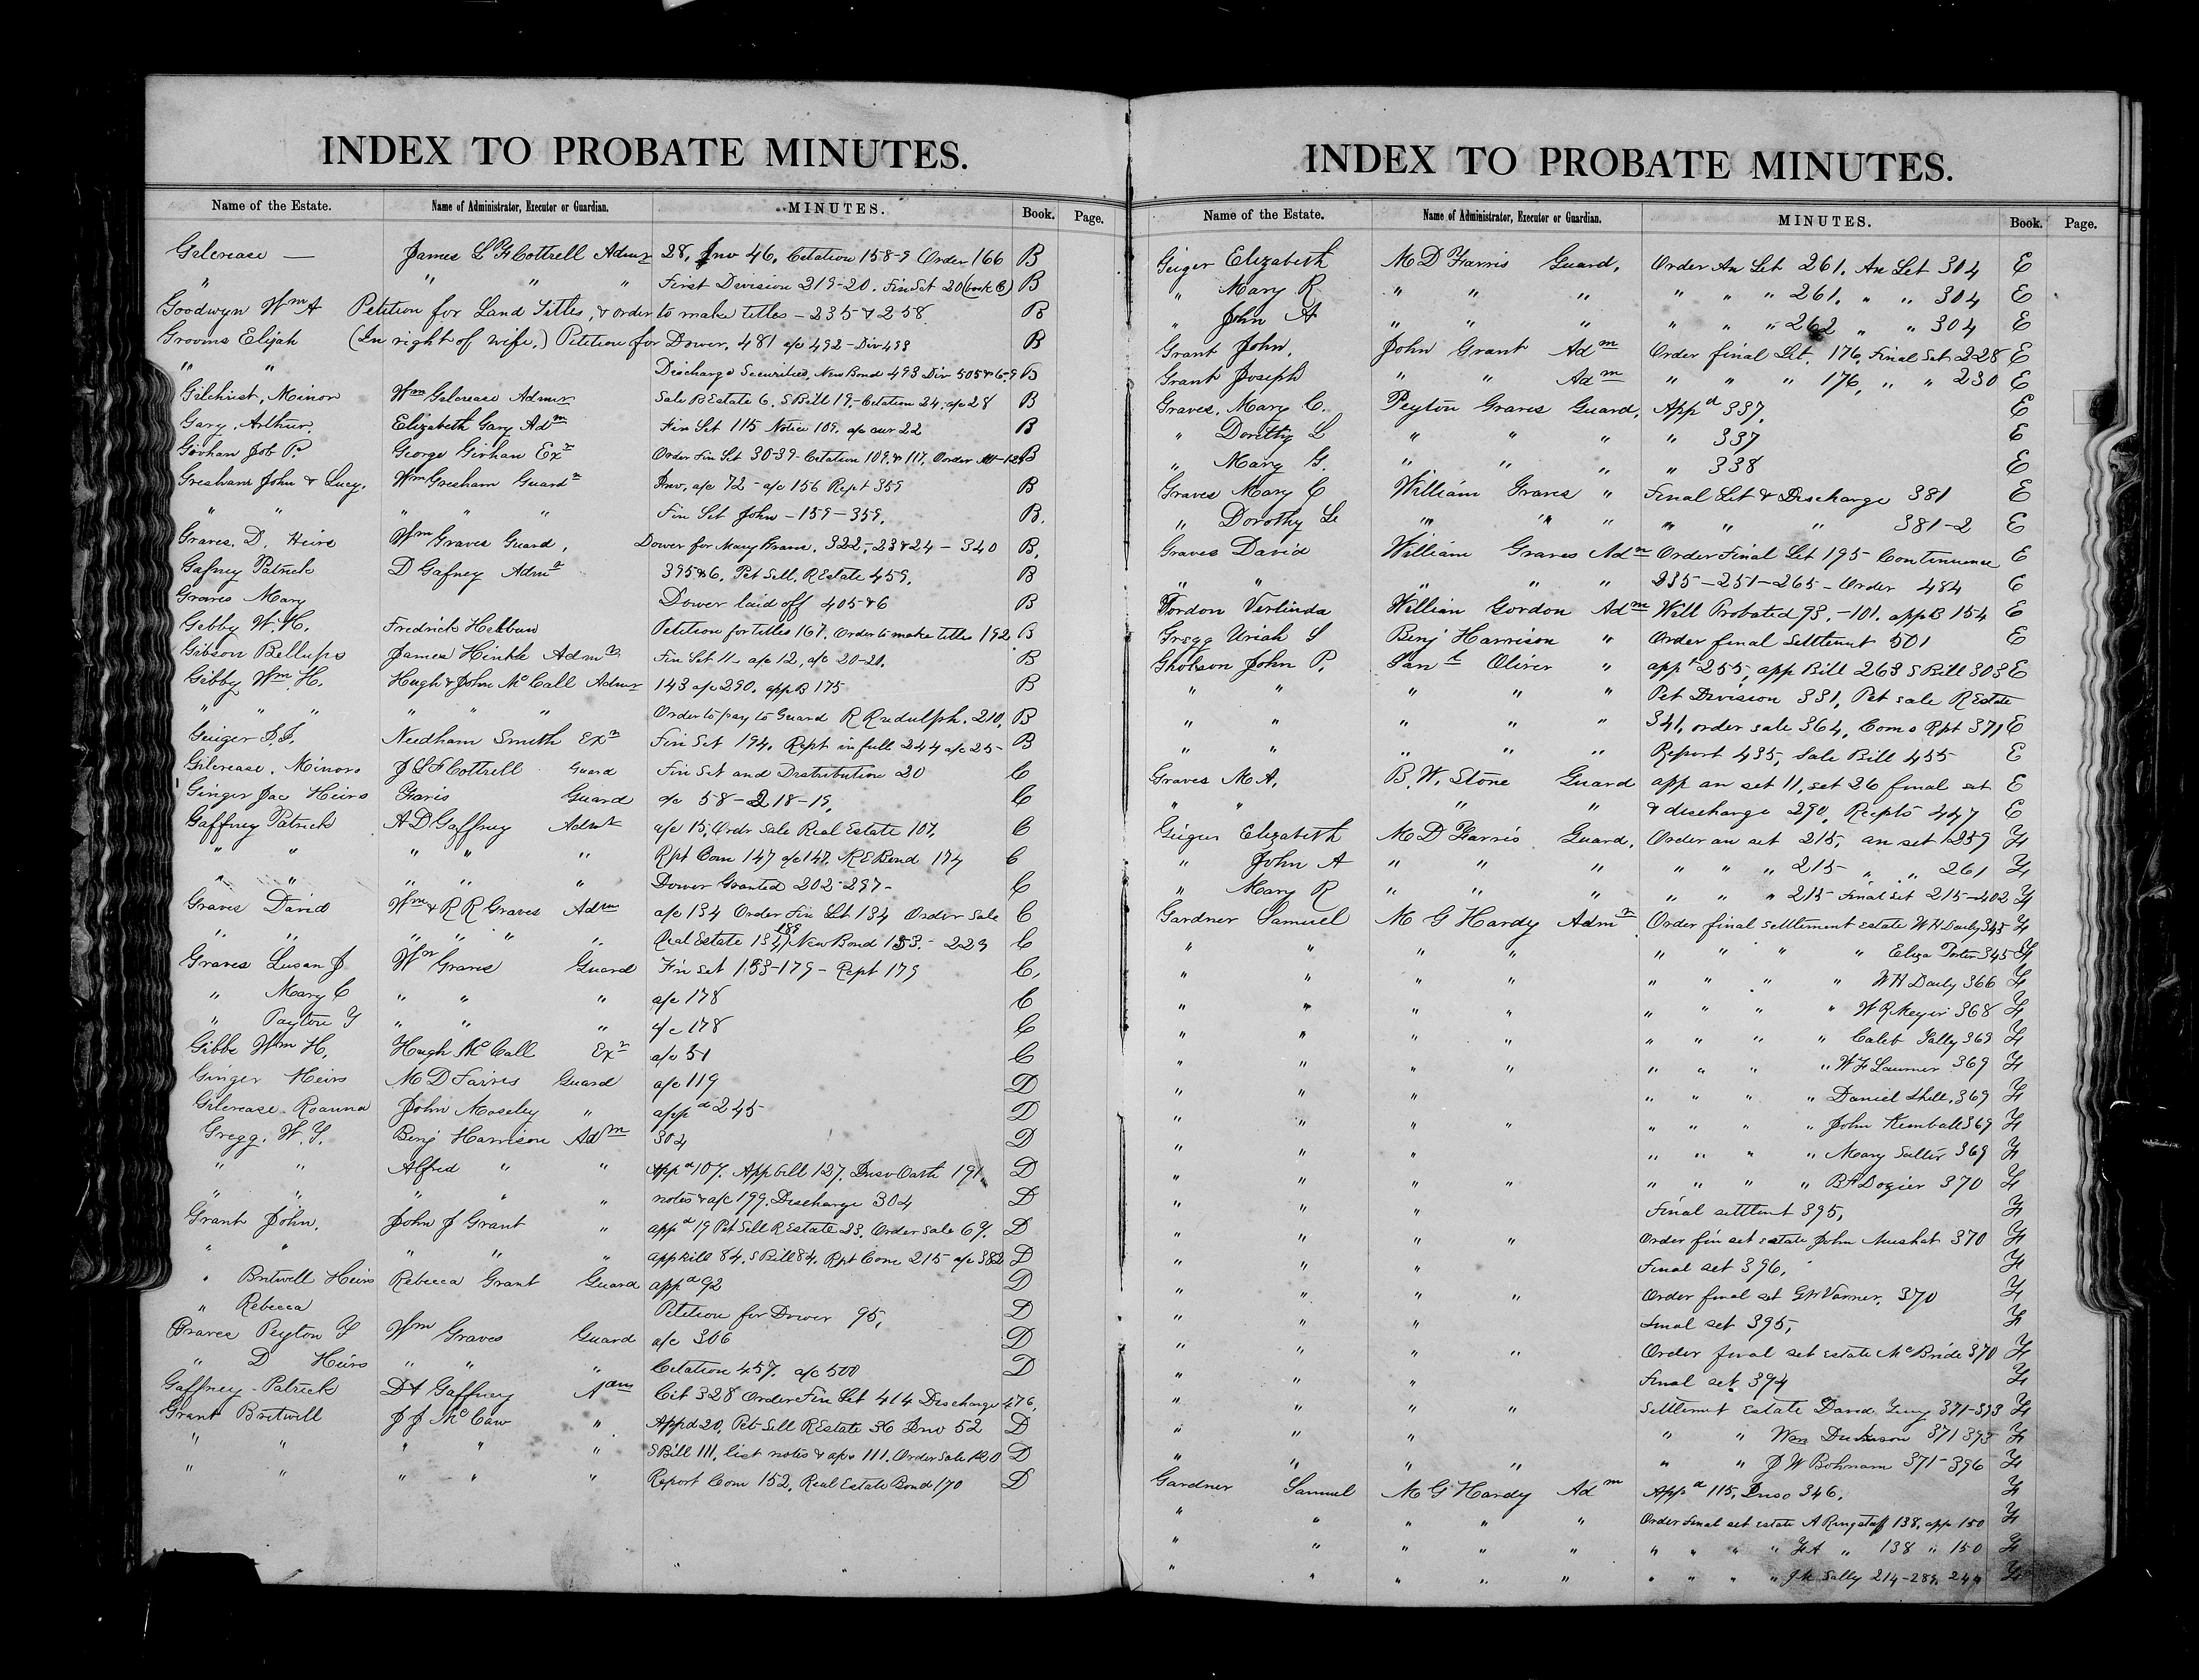 INDEX TO PROBATE MINUTES.
Name of the Estate. Name of Administrator, Executor or Guardian. MINUTES. Book. Page.
Gilcrease — James L F Cottrell Admr 28, Inv 46, Citation 158-9 Order 166 B
" " " " First Division 219-20. Fin Set 20 (book C) B
Goodwyn Wm A Petition for Land Titles, & order to make titles - 235 & 258 B
Grooms Elijah (In right of wife.) Petition for Dower. 481 a/c 492 - Div 498 B
" " Discharge Securities, New Bond 493 Div 505 & 6-9 B
Gilchrist, Minor Wm Gilcrease Admr Sale R Estate 6. S Bill 19. Citation 24. a/c 28 B
Gary, Arthur. Elizabeth Gary Adm Fin Set 115 Notice 109. a/c cur 22 B
Girhan Job P. George Girhan Exr Order Fin Set 30-39 - Citation 109. & 117. Order B
Gresham John & Lucy. Wm Gresham Guardn Inv. a/c 72 - a/c 156 Rept 359 B
" " " " " Fin Set John - 159 - 359. B.
Graves. D. Heirs Wm Graves Guard, Dower for Mary Grave. 322, - 23 & 24 - 340 B.
Gafney Patrick D Gafney Admr 395 & 6. Pet Sell. R Estate 459. B
Graves Mary Dower laid off 405 & 6 B
Gebby W. H. Fredrick Petition for titles 167. Order to make titles 192 B
Gibson Bellups James Hinkle Admr Fin Set 11 - a/c 12, a/c 20-21. B
Gibby Wm. H. Hugh & John McCall Admr 143 a/c 290. app B 175 B
" " " " " " Order to pay to Guard R Rudulph. 210, B
Geiger J. J. Needham Smith Exr Fin Set 194. Rept in full 244 a/c 25 - B
Gilcrease. Minors J L F Cottrell Guard Fin Set and Distribution 20 C
Ginger Jac Heirs Faris Guard a/c 58 - 218-19. C
Gaffney Patrick A D Gaffney Admr a/c 15, Ordr Sale Real Estate 107. C
" " " " " Rpt Com 147 a/c 147. R E Bond 174 C
" " " " " Dower Granted 202 - 297 - C
Graves David Wm & R R Graves Adm a/c 134 Order Fin Set 134 Order Sale C
" " " " " " Real Estate 134, 189 New Bond 153. - 223 C
Graves Susan J Wm Graves Guard Fin Set 153-179 - Rept 179 C,
" Mary C " " " a/c 178 C
" Payton Y " " " a/c 178 C
Gibbs Wm H. Hugh McCall Exr a/c 51 C
Ginger Heirs M D Fairis Guard a/c 119 D
Gilcrease. Roanna John Moseley " appd 245 D
Gregg. W. Y. Benj Harrison Adm 304 D
" " Alfred " " Appd 107. App bill 127. Insv Oath 191. D
" " " " " notes & a/c 199. Discharge 304 D
Grant John. John J Grant " appd 19 Pet Sell R Estate 23. Order Sale 69. D
" " " " " app bill 84. S Bill 84. Rpt Com 215 a/c 382 D
" Britwell Heirs Rebecca Grant Guard appd 92 D
" Rebecca Petition for Dower 95, D
Graves Peyton Y Wm Graves Guard a/c 306 D
" D Heirs " " " Citation 457. a/c 500 D
Gaffney. Patrick D A Gaffney Adm Cit 328 Order Fin Set 414 Discharge 476,
Grant Britwell J J McCaw " Appd 20, Pet Sell R Estate 36 Inv 52 D
" " " " " S Bill 111, list notes & a/cs 111. Order Sale 120 D
" " " " " Report Com 152, Real Estate Bond 170 D
INDEX TO PROBATE MINUTES.
Name of the Estate. Name of Administrator, Executor or Guardian. MINUTES. Book. Page.
Geiger Elizabeth M D Farris Guard, Order An Set 261. An Set 304 E
" Mary R " " " " " " 261. " " 304 E
" John A " " " " " " 262 " " 304 E
Grant John. John Grant Adm Order final Set. 176, Final Set 228 E
Grant Joseph " " Adm " " " 176, " " 230 E
Graves. Mary C. Peyton Graves Guard, Appd 337. E
" Dorithy L " " " " 337 E
" Mary G. " " " " 338 E
Graves Mary C William Graves " Final Set & Discharge 381 E
" Dorothy Le " " " " " " 381-2 E
Graves David William Graves Adm Order Final Set 195 Continuence E
" " " " " 235 - 251 - 265 - Order 484 E
Gordon Verlinda William Gordon Adm Will Probated 93. - 101. app B 154 E
Gregg Uriah S Benj Harrison " Order final Settlement 501 E
Gholson John P. Saml Oliver " appd 255, app Bill 263 S Bill 303 E
" " " " " Pet Division 331, Pet sale R Estate
" " " " " 341, order sale 364, Coms Rpt 371 E
" " " " " Report 435, Sale Bill 455 E
Graves M A. B. W. Stone Guard app an set 11, set 26 final set E
" " " " & discharge 290, Recpts 447 E
Geiger Elizabeth M D Farris Guard, Order an set 215, an set 259 F
" John A " " " " " " 215 " " 261 F
" Mary R " " " " " " 215 - Final set 215-402 F
Gardner Samuel M G Hardy Admr Order final settlement estate W H Daily 345 F
" " " " " " " " Eliza Porter 345 F
" " " " " " " " W H Daily 366 F
" " " " " " " " W R Meyer 368 F
" " " " " " " " Caleb Gally 369 F
" " " " " " " " W F Laumer 369 F
" " " " " " " Daniel 369 F
" " " " " " " " John Kimball 369 F
" " " " " " " Mary Salter 369 F
" " " " " " " " B F Dozier 370 F
" " " Final settlemt 395, F
" " " " Order fin set estate John Mushat 370 F
" " " Final set 396, F
" " " " Order final set G W Varner. 370 F
" " " Final set 395, F
" " " " Order final set estate McBride 370 F
" " " Final set 394 F
" " " " Settlement Estate David 371-393 F
" " " " " Wm Dickerson 371 395 F
" " " " " " J W Bohnam 371-396 F
Gardner Samuel M G Hardy Adm Appd 115, Inso 346. F
" " " " " Order final set estate A Ringstaff 138, app 150 F
" " " " " " " " " F A " 138 " 150 F
" " " " " " " " " J M Sally 214-289. 244 F